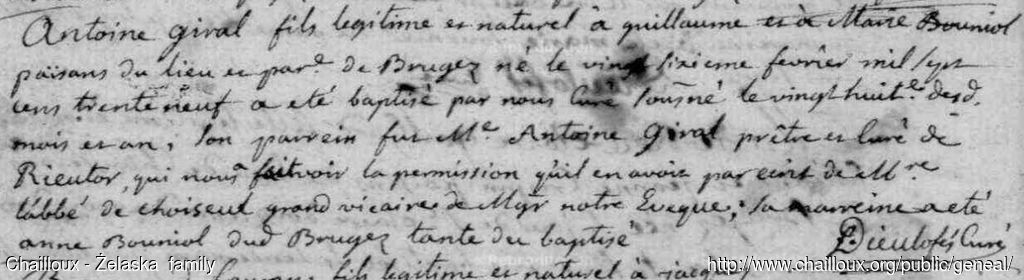 Antoine giral fils legitime et naturel à guillaume et à Marie Bouniol
païsans du lieu et par.e de Brugez né le vingt sixieme fevrier mil sept
cens trente neuf a eté baptisé par nous Curé sousné le vingt huit.e desd.
mois et an, son parrein fut M.e Antoine Giral prêtre et curé de
Rieutor, qui nous fait voir la permission qu'il en avoit par ecrit de M.re
l'abbé de choiseul grand vicaire de Mgr notre Eveque; sa marreine a eté
anne Bouniol dud Brugez tante du baptisé Dieulofés Curé
fils legitime et naturel à
Chailloux - Żelaska family
http://www.chailloux.org/public/geneal/